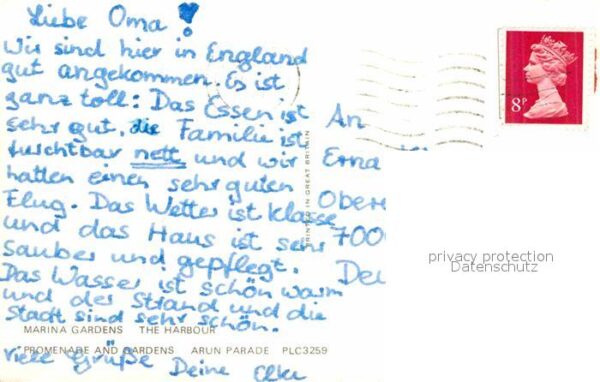 Liebe Oma!
Wir sind hier in England
gut angekommen. Es ist
ganz toll: Das Essen ist
sehr gut, die Familie ist
furchtbar nett und wir
hatten einen sehr guten
Flug. Das Wetter ist klasse
und das Haus ist sehr
sauber und gepflegt.
Das Wasser ist schön warm
und der Strand und die
Stadt sind sehr schön.
MARINA GARDENS THE HARBOUR
PROMENADE AND GARDENS ARUN PARADE PLC3259
viele Grüße Deine Elke
PRINTED IN GREAT BRITAIN
An
Erna
Ober
700
8P
privacy protection
Datenschutz